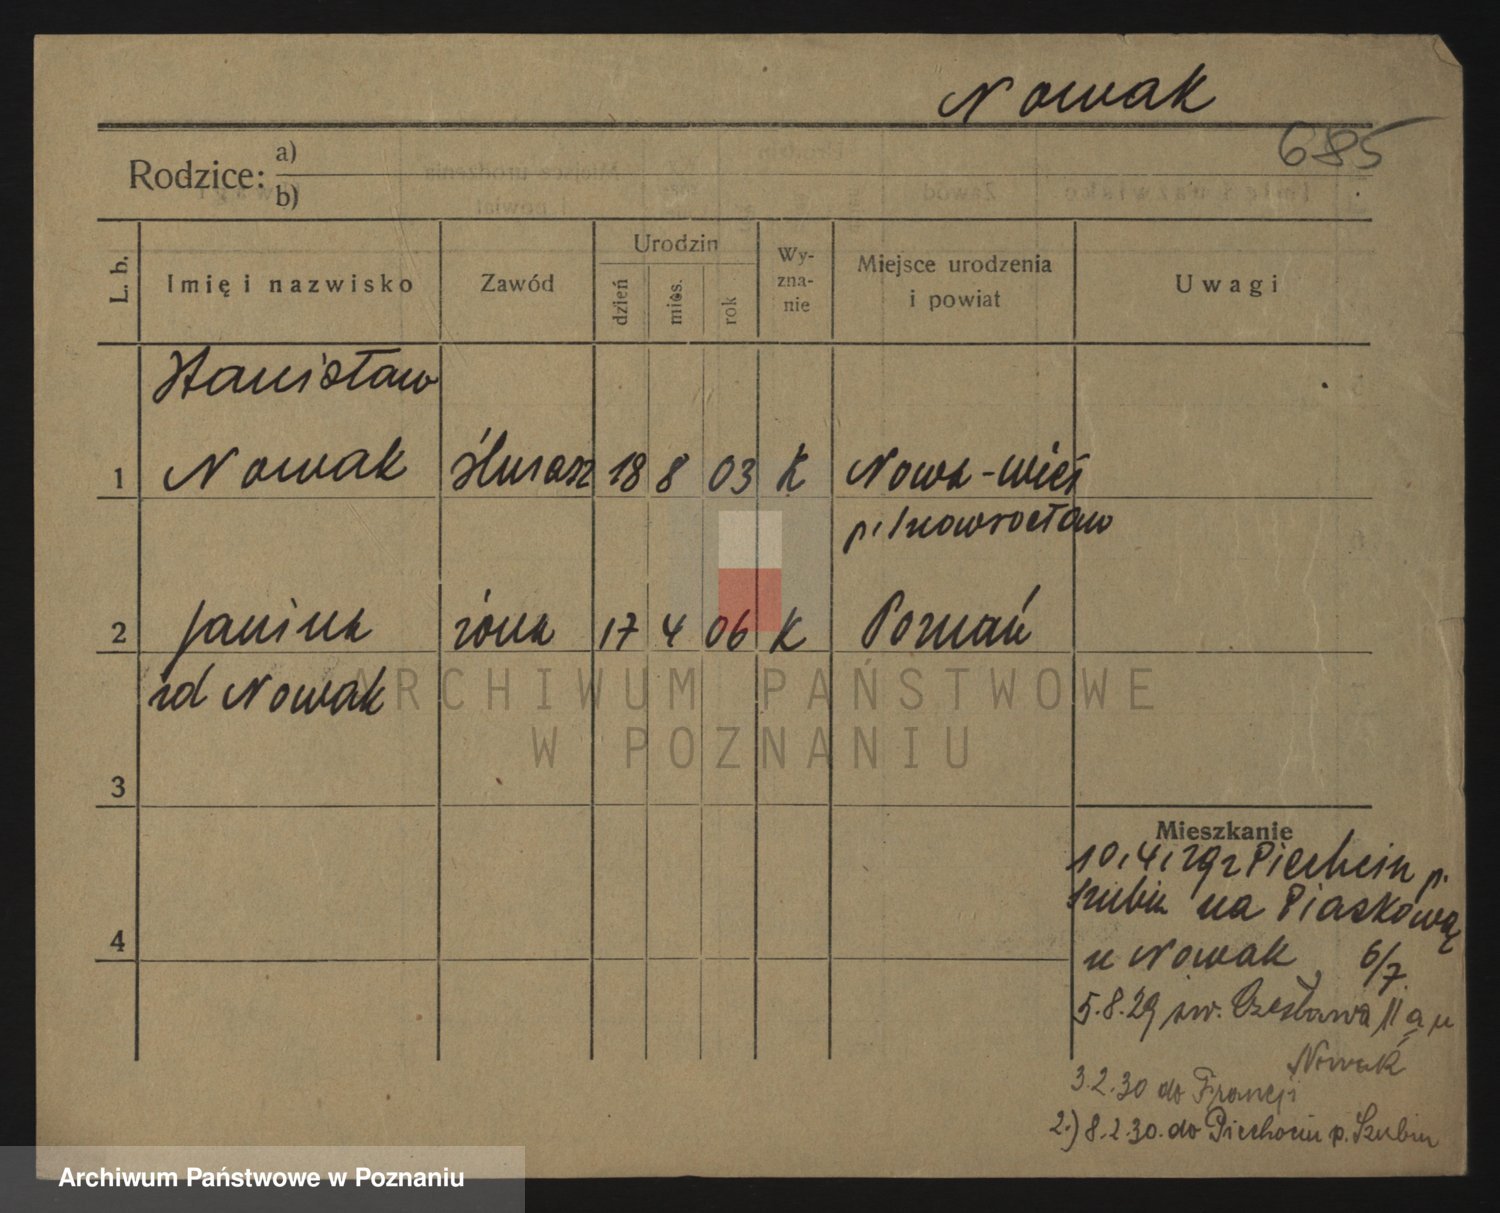 Nowak
685
Rodzice: a)
b)
L. b.
Imię i nazwisko
Zawód
Urodzin
dzień
mies.
rok
Wy-
zna-
nie
Miejsce urodzenia
i powiat
Uwagi
Stanisław
1 Nowak ślusarz 18 8 03 K Nowa-wieś
p. Inowrocław
2 Janina żona 17 4 06 K Poznań
zd Nowak
ARCHIWUM PAŃSTWOWE
W POZNANIU
3
Mieszkanie
10.4.29 z Piechcin p.
Szubin na Piaskową
4
u Nowak 6/7
5.8.29 św. Czesława 11 a u
Nowak
3.2.30 do Francji
2.) 8.2.30. do Piechocin p. Szubin
Archiwum Państwowe w Poznaniu